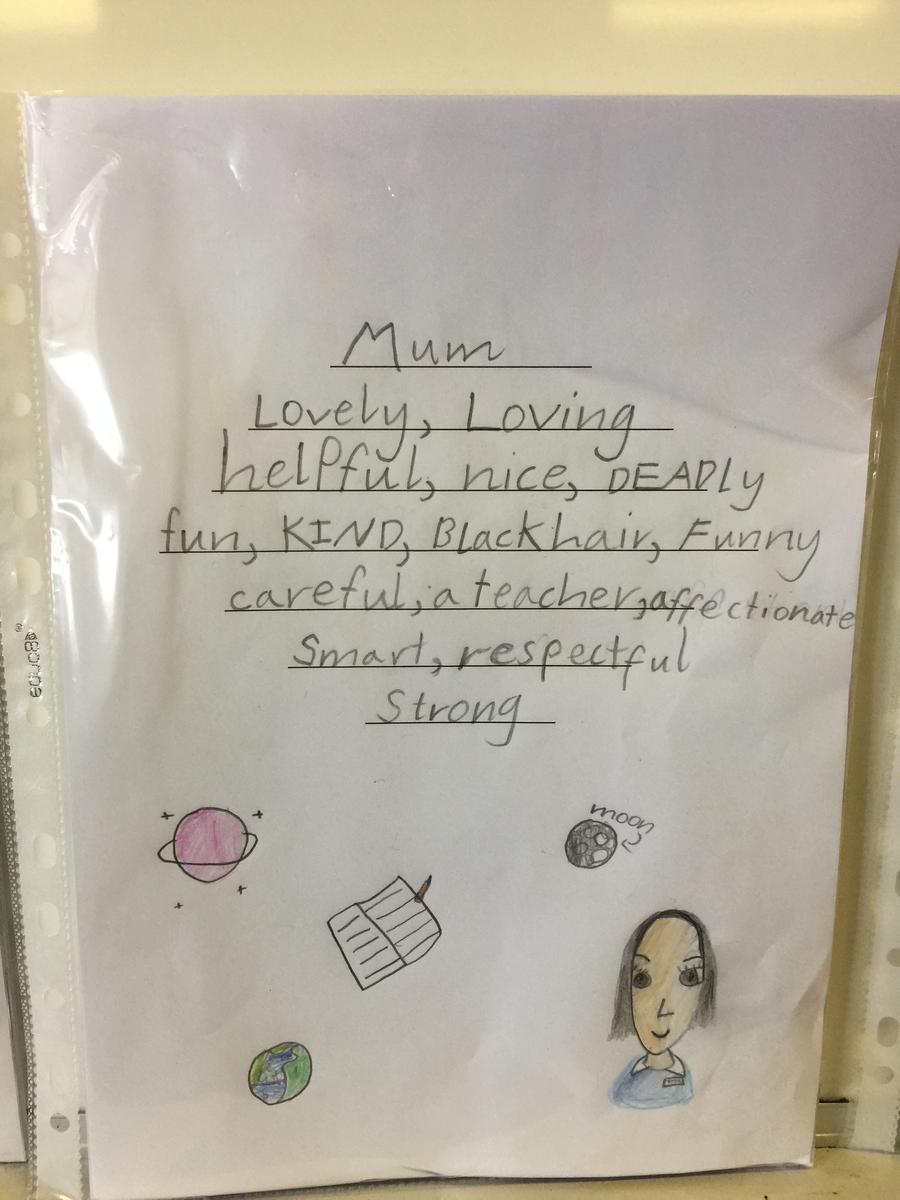 Mum
Lovely, Loving
helpful, nice, DEADLy
fun, KIND, Blackhair, Funny
careful, a teacher, affectionate
Smart, respectful
Strong
moon